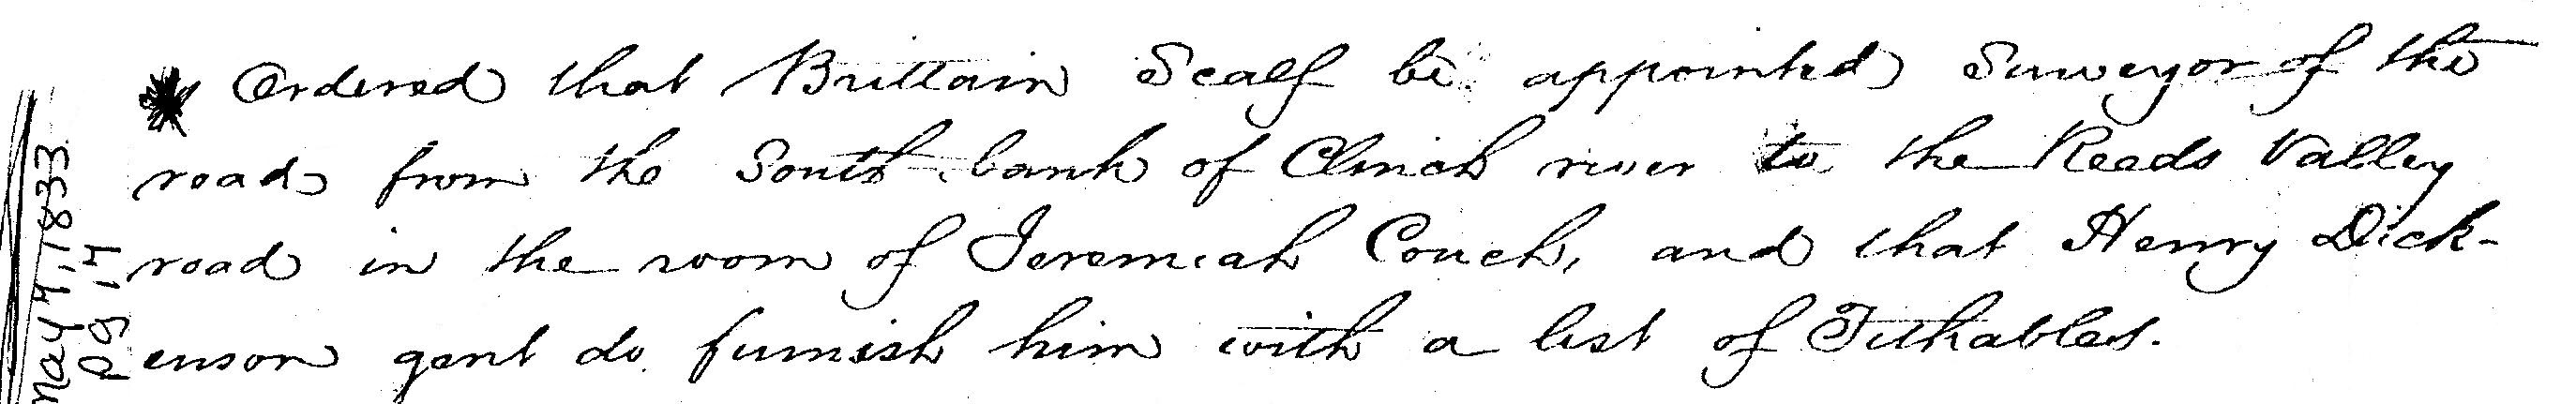 Ordered that Brittain Scalf be appointed Surveyor of the
road from the South bank of Clinch river to the Reeds Valley
road in the room of Jeremiah Couch, and that Henry Dick-
enson gent do furnish him with a list of Tithables.
May 7, 1833
pg 17